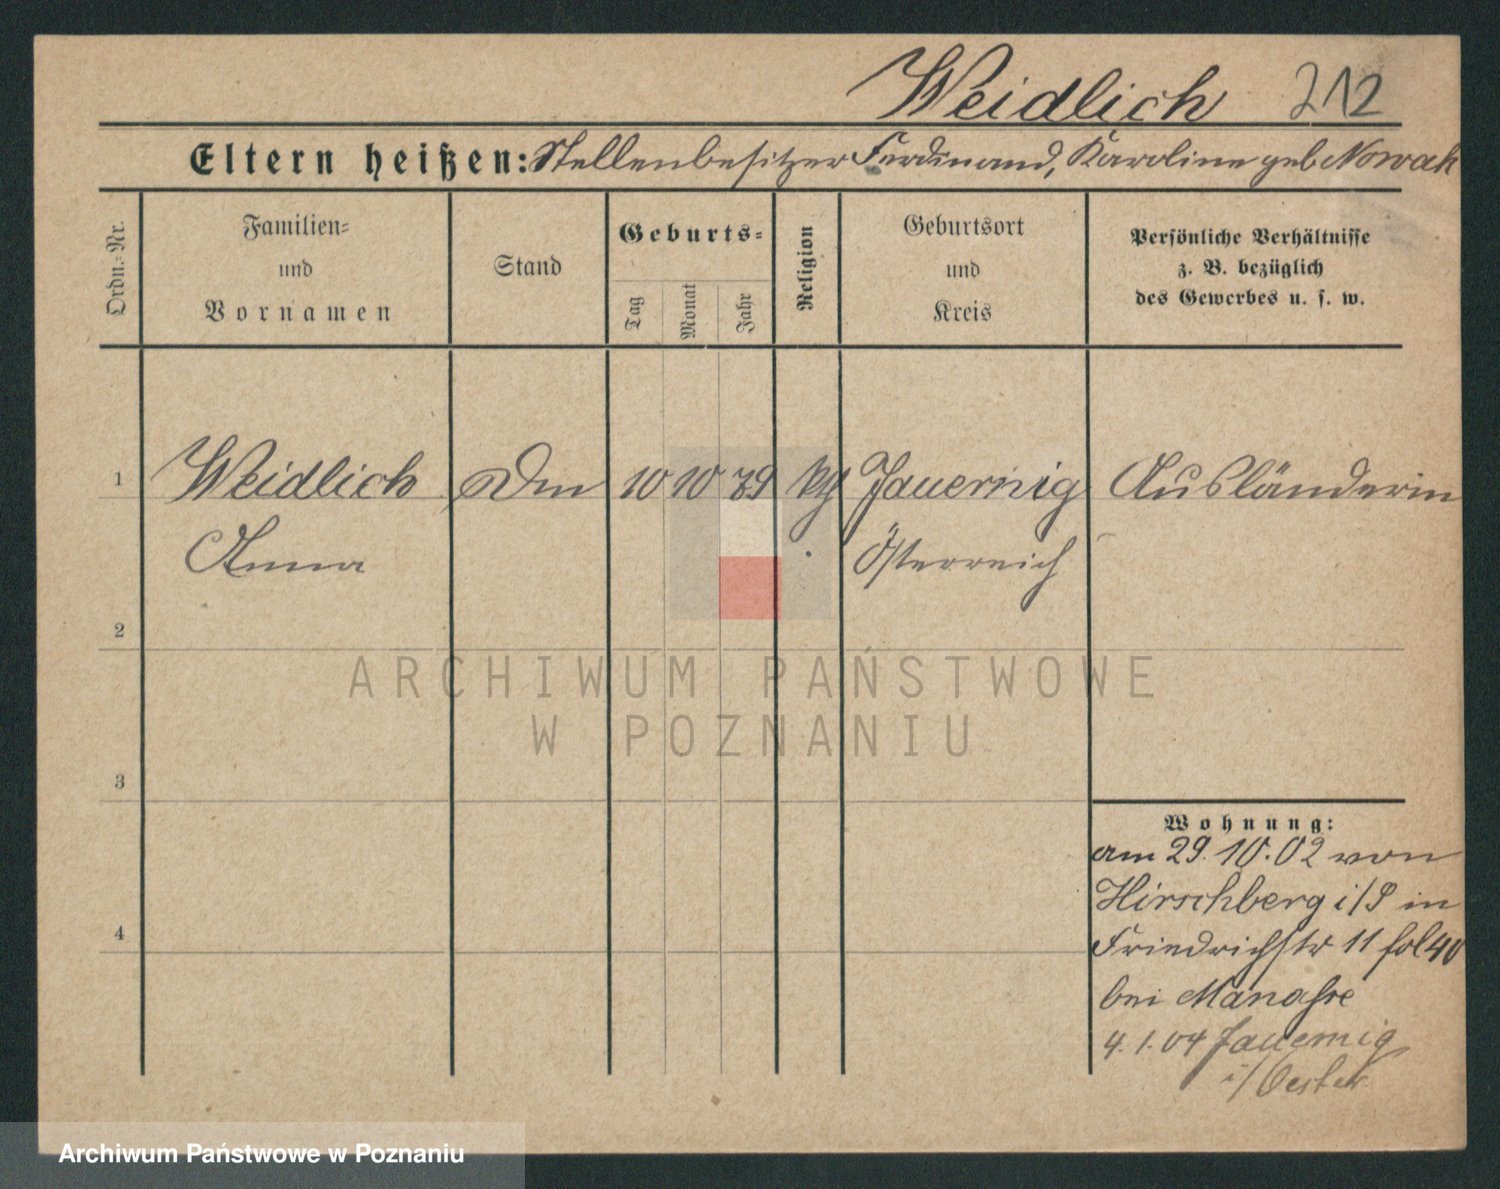 Weidlich 212
Eltern heißen: Stellenbesitzer Ferdinand, Karoline geb Nowak
Ordn.-Nr.
Familien-
und
Vornamen
Stand
Geburts-
Tag
Monat
Jahr
Religion
Geburtsort
und
Kreis
Persönliche Verhältnisse
z. B. bezüglich
des Gewerbes u. s. w.
1 Weidlich 10 10 79 kth Jauernig Ausländerin
Anna Österreich
2
ARCHIWUM PAŃSTWOWE
W POZNANIU
3
Wohnung:
am 29.10.02 von
Hirschberg i/S in
4 Friedrichstr 11 fol 40
bei Manasse
4.1.04 Jauernig
i/Oester
Archiwum Państwowe w Poznaniu